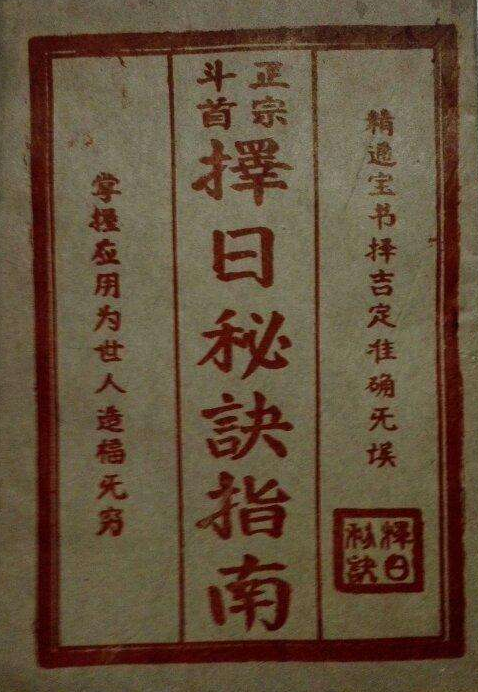 精通宝书择吉定准确无
择日
秘訣
正宗
斗首
擇日秘訣指南
掌握应用为世人造福无穷